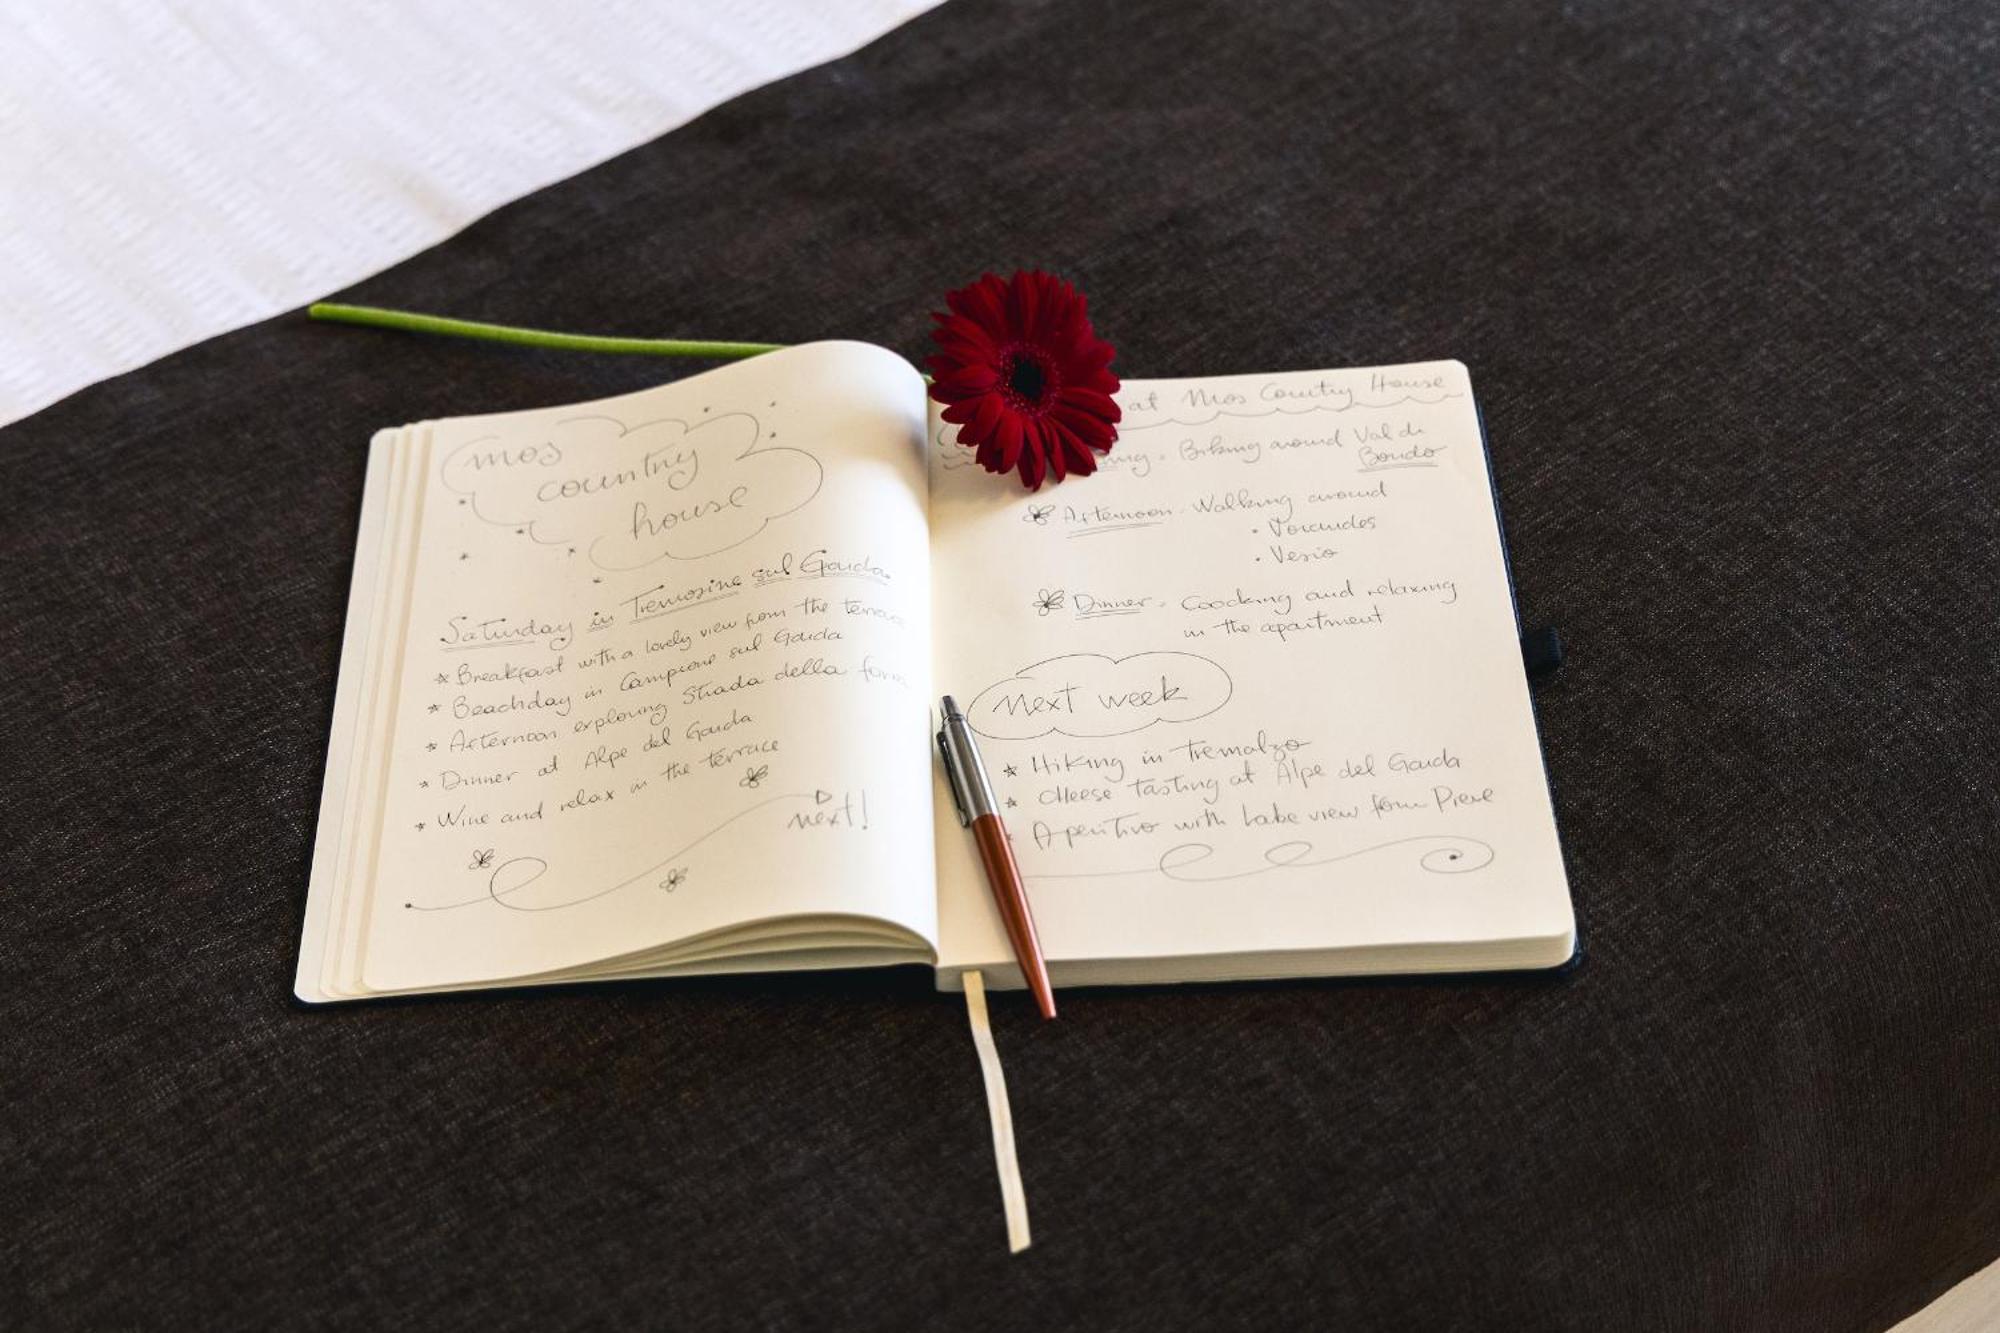 mos
country
house
Saturday in Tremosine sul Garda
* Breakfast with a lovely view from the terrace
* Beachday in Campione sul Garda
* Afternoon exploring Strada della forra
* Dinner at Alpe del Garda
* Wine and relax in the terrace
next!
at Mos Country House
Biking around Val di
Bondo
Afternoon - Walking around
• Voiandes
• Vesio
Dinner - Coocking and relaxing
in the apartment
next week
* Hiking in Tremalzo
* Cheese Tasting at Alpe del Garda
* Aperitivo with Lake view from Pieve